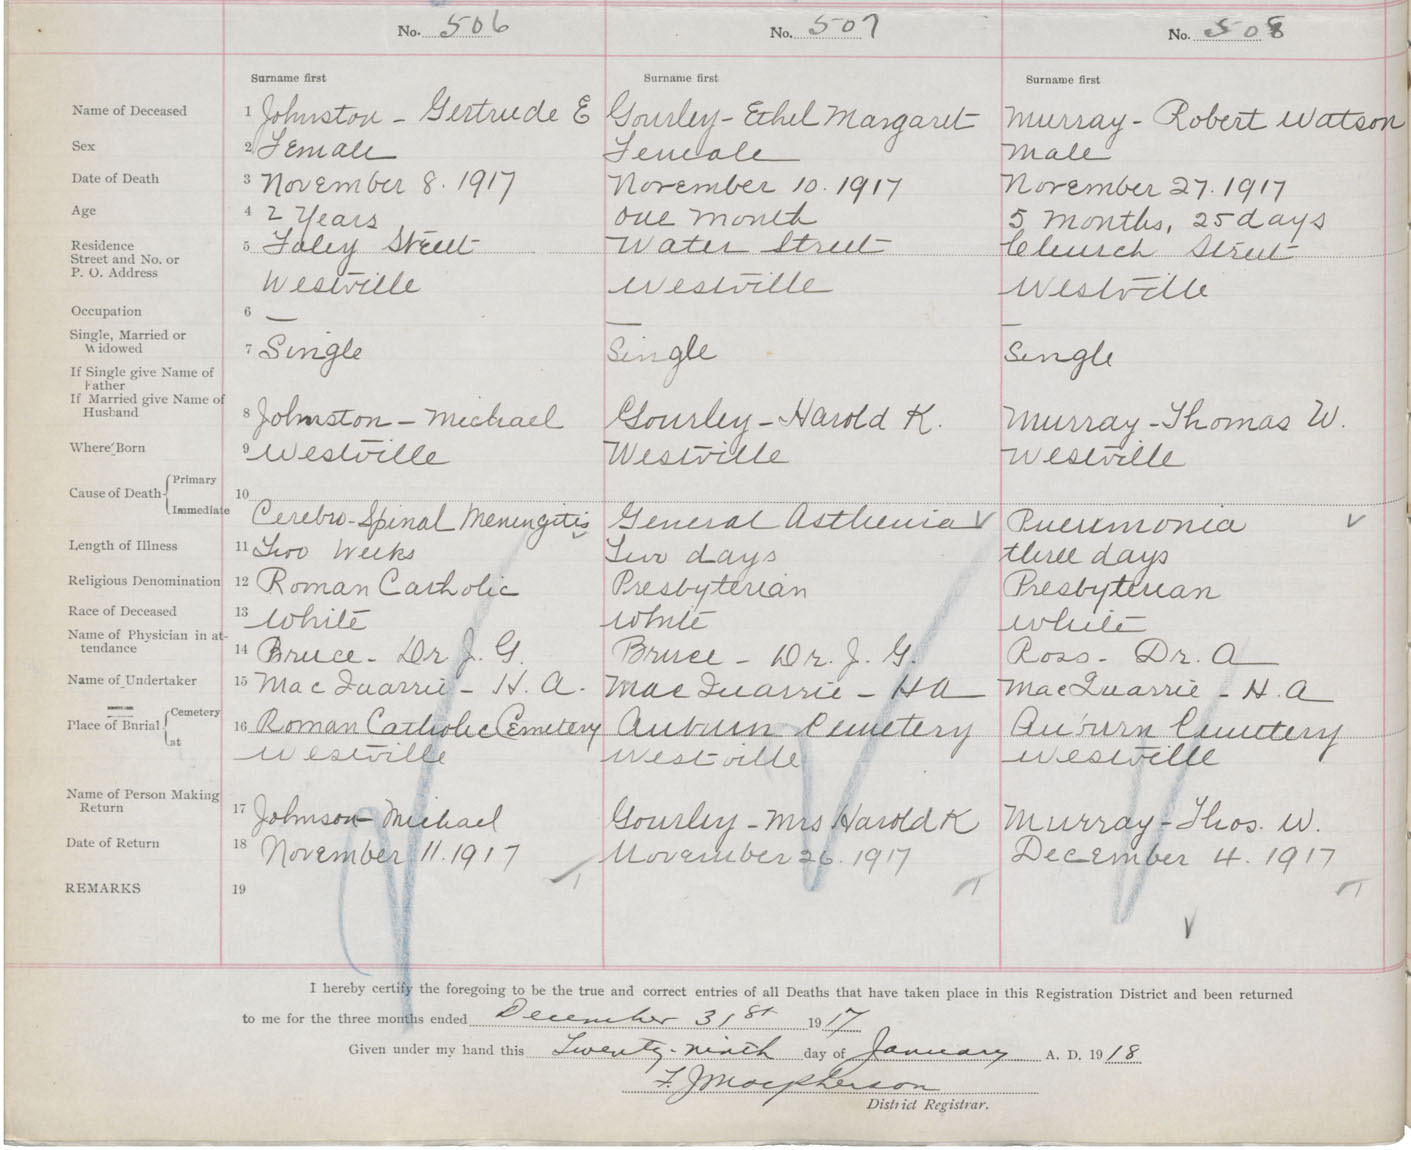 No. 506 No. 507 No. 508
Surname first Surname first Surname first
Name of Deceased 1 Johnston - Gertrude E Gourley - Ethel Margaret Murray - Robert Watson
Sex 2 Female Female Male
Date of Death 3 November 8. 1917 November 10. 1917 November 27. 1917
Age 4 2 Years One month 5 months, 25 days
Residence 5 Foley Street Water Street Church Street
Street and No. or
P. O. Address Westville Westville Westville
Occupation 6 — — —
Single, Married or
Widowed 7 Single Single Single
If Single give Name of
Father
If Married give Name of
Husband 8 Johnston - Michael Gourley - Harold K. Murray - Thomas W.
Where Born 9 Westville Westville Westville
Cause of Death Primary 10
Immediate Cerebro-Spinal Meningitis General Asthenia Pneumonia
Length of Illness 11 Two Weeks Two days three days
Religious Denomination 12 Roman Catholic Presbyterian Presbyterian
Race of Deceased 13 White White White
Name of Physician in at-
tendance 14 Bruce - Dr. J. G. Bruce - Dr. J. G. Ross - Dr. A
Name of Undertaker 15 MacQuarrie - H. A. MacQuarrie - H A MacQuarrie - H. A
Place of Burial Cemetery 16 Roman Catholic Cemetery Auburn Cemetery Auburn Cemetery
at Westville Westville Westville
Name of Person Making
Return 17 Johnson - Michael Gourley - Mrs Harold K Murray - Thos. W.
Date of Return 18 November 11. 1917 November 26. 1917 December 4. 1917
REMARKS 19
I hereby certify the foregoing to be the true and correct entries of all Deaths that have taken place in this Registration District and been returned
to me for the three months ended December 31st 1917
Given under my hand this Twenty-ninth day of January A. D. 1918
F. J Macpherson
District Registrar.